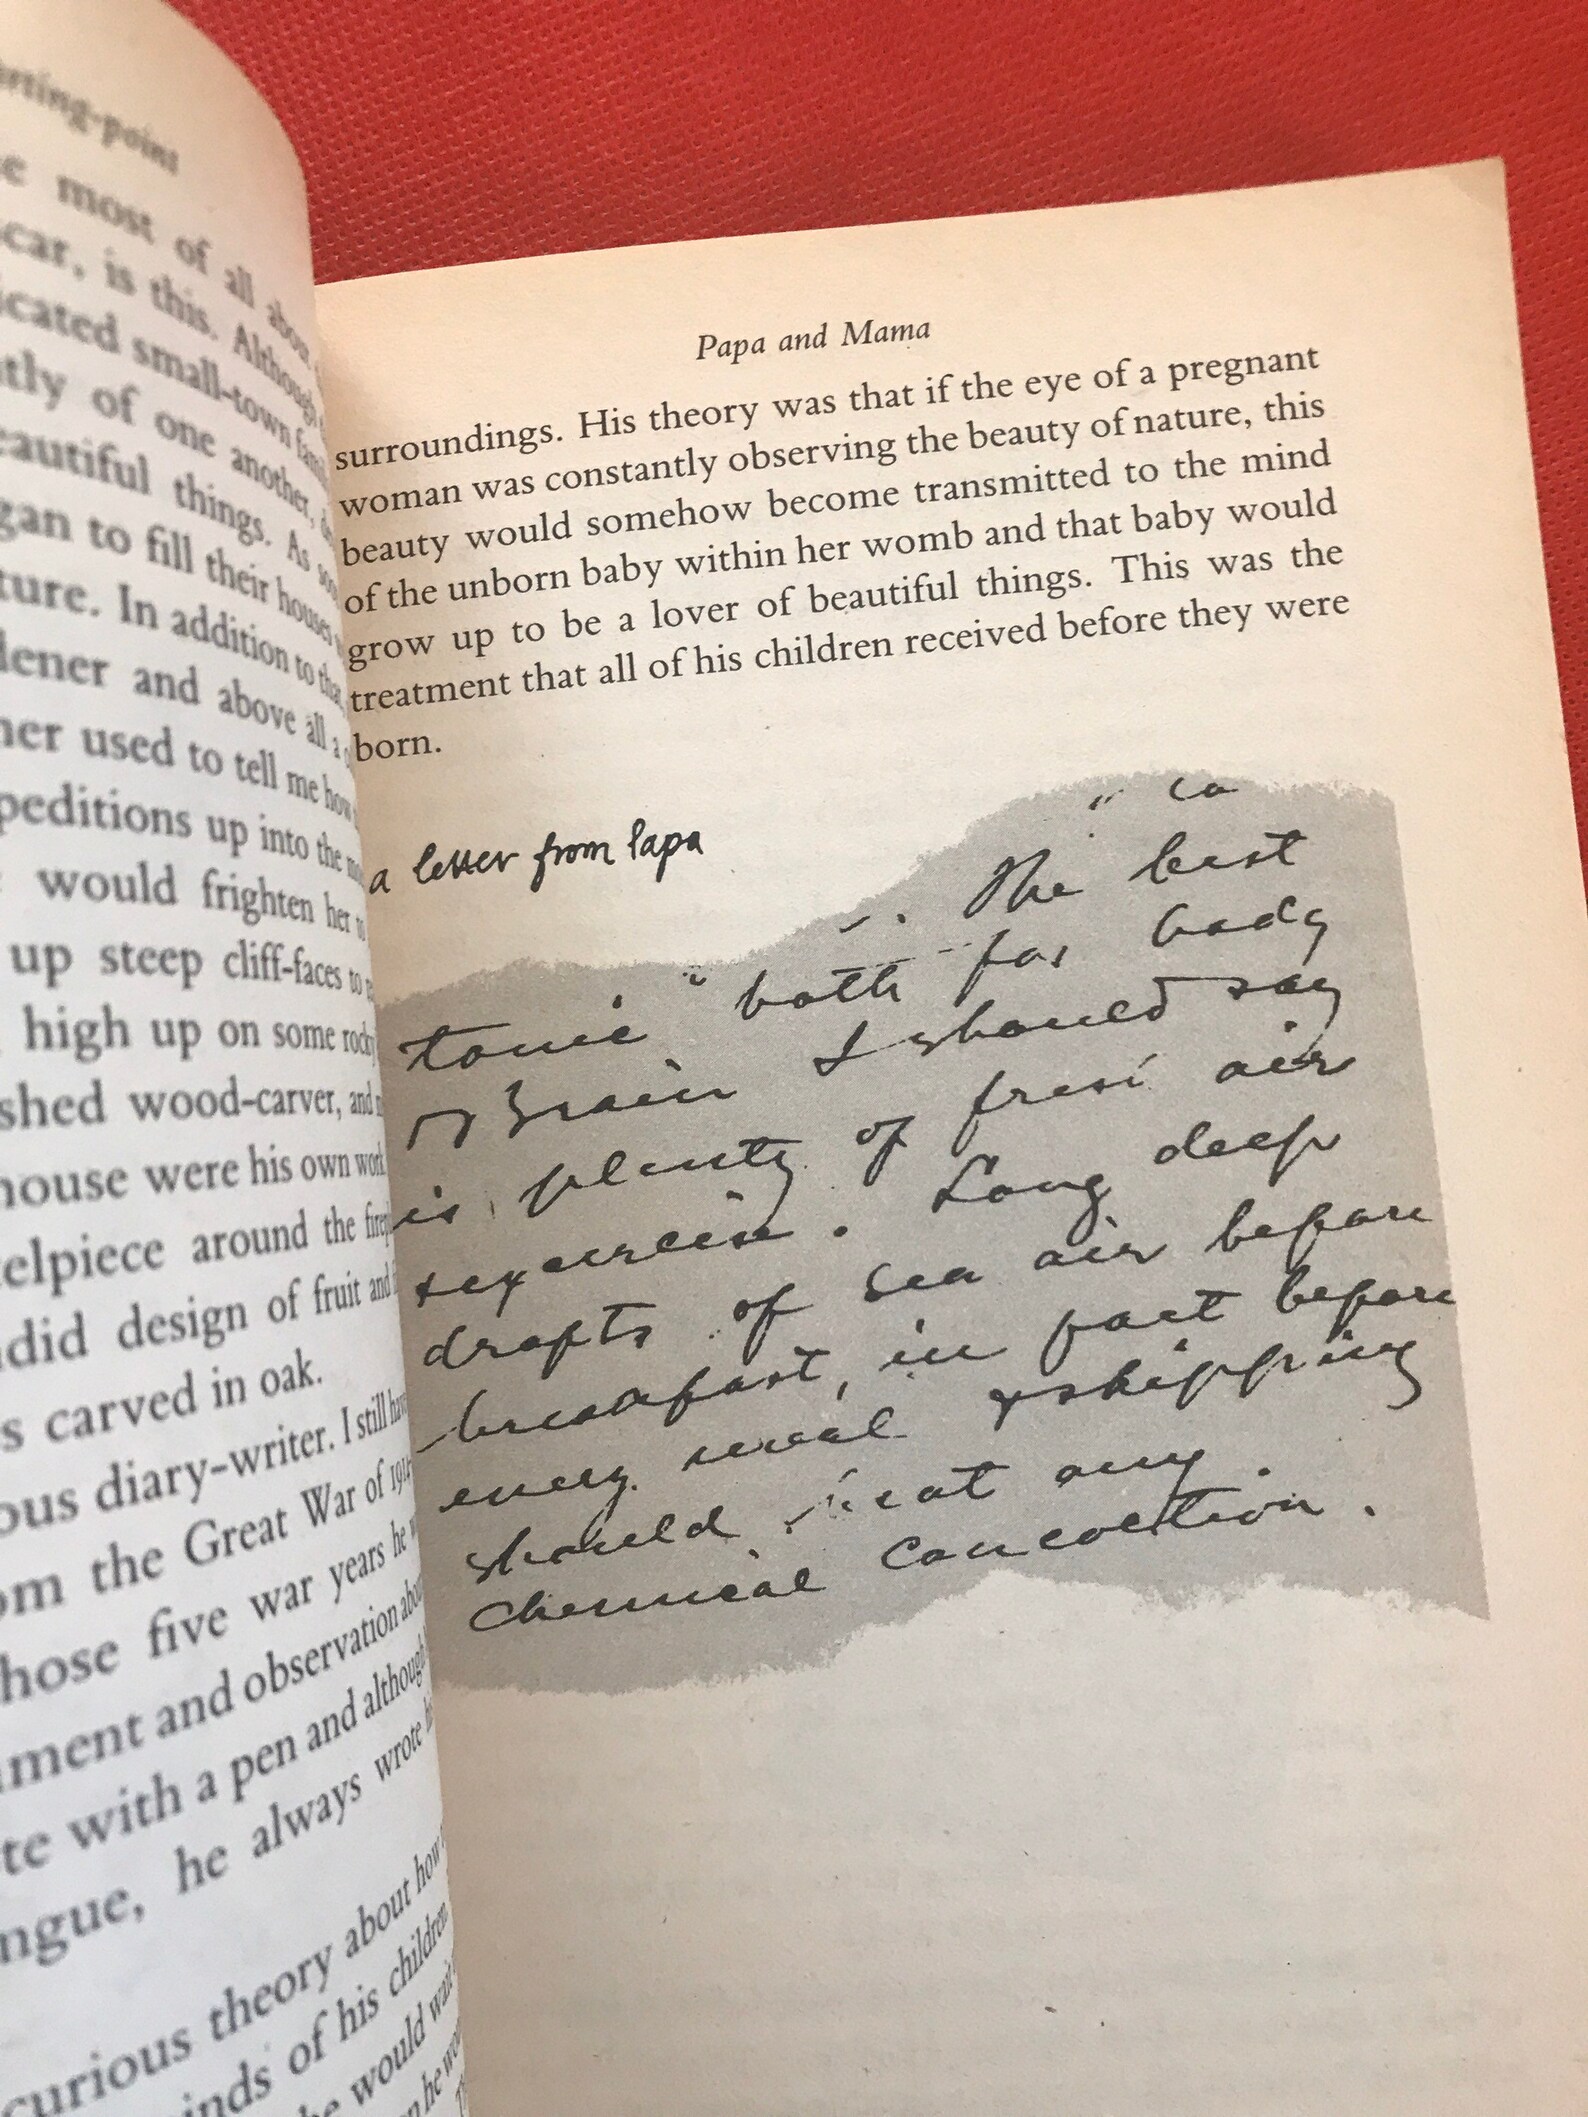 rting-point
most of all about
car, is this. Although
icated small-town
tly of one another,
eautiful things. As
gan to fill their houses
ture. In addition to that
dener and above all a
her used to tell me how
peditions up into the
would frighten her to
up steep cliff-faces to
high up on some rocky
shed wood-carver, and
house were his own work
elpiece around the
did design of fruit and
s carved in oak.
ous diary-writer. I still have
om the Great War of 1914
hose five war years he
ment and observation about
te with a pen and although
ngue, he always wrote
curious theory about how
inds of his children
he would wait
n he wo
Papa and Mama
surroundings. His theory was that if the eye of a pregnant
woman was constantly observing the beauty of nature, this
beauty would somehow become transmitted to the mind
of the unborn baby within her womb and that baby would
grow up to be a lover of beautiful things. This was the
treatment that all of his children received before they were
born.
a letter from Papa
The best
tonic both for body
Brain I should say
is plenty of fresh air
& exercise. Long deep
drafts of sea air before
breakfast, in fact before
every meal & skipping
should beat any
chemical concoction.